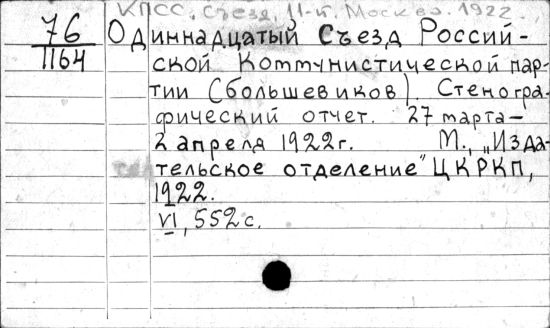 КПСС. Съезд, 11-й. Москва. 1922.
76
1164
Одиннадцатый Съезд Россий-
ской Коммунистической пар-
тии (большевиков). Стеногра-
фический отчет. 27 марта–
2 апреля 1922 г. М., „Изда-
тельское отделение" ЦКРКП,
1922.
VI, 552 с.